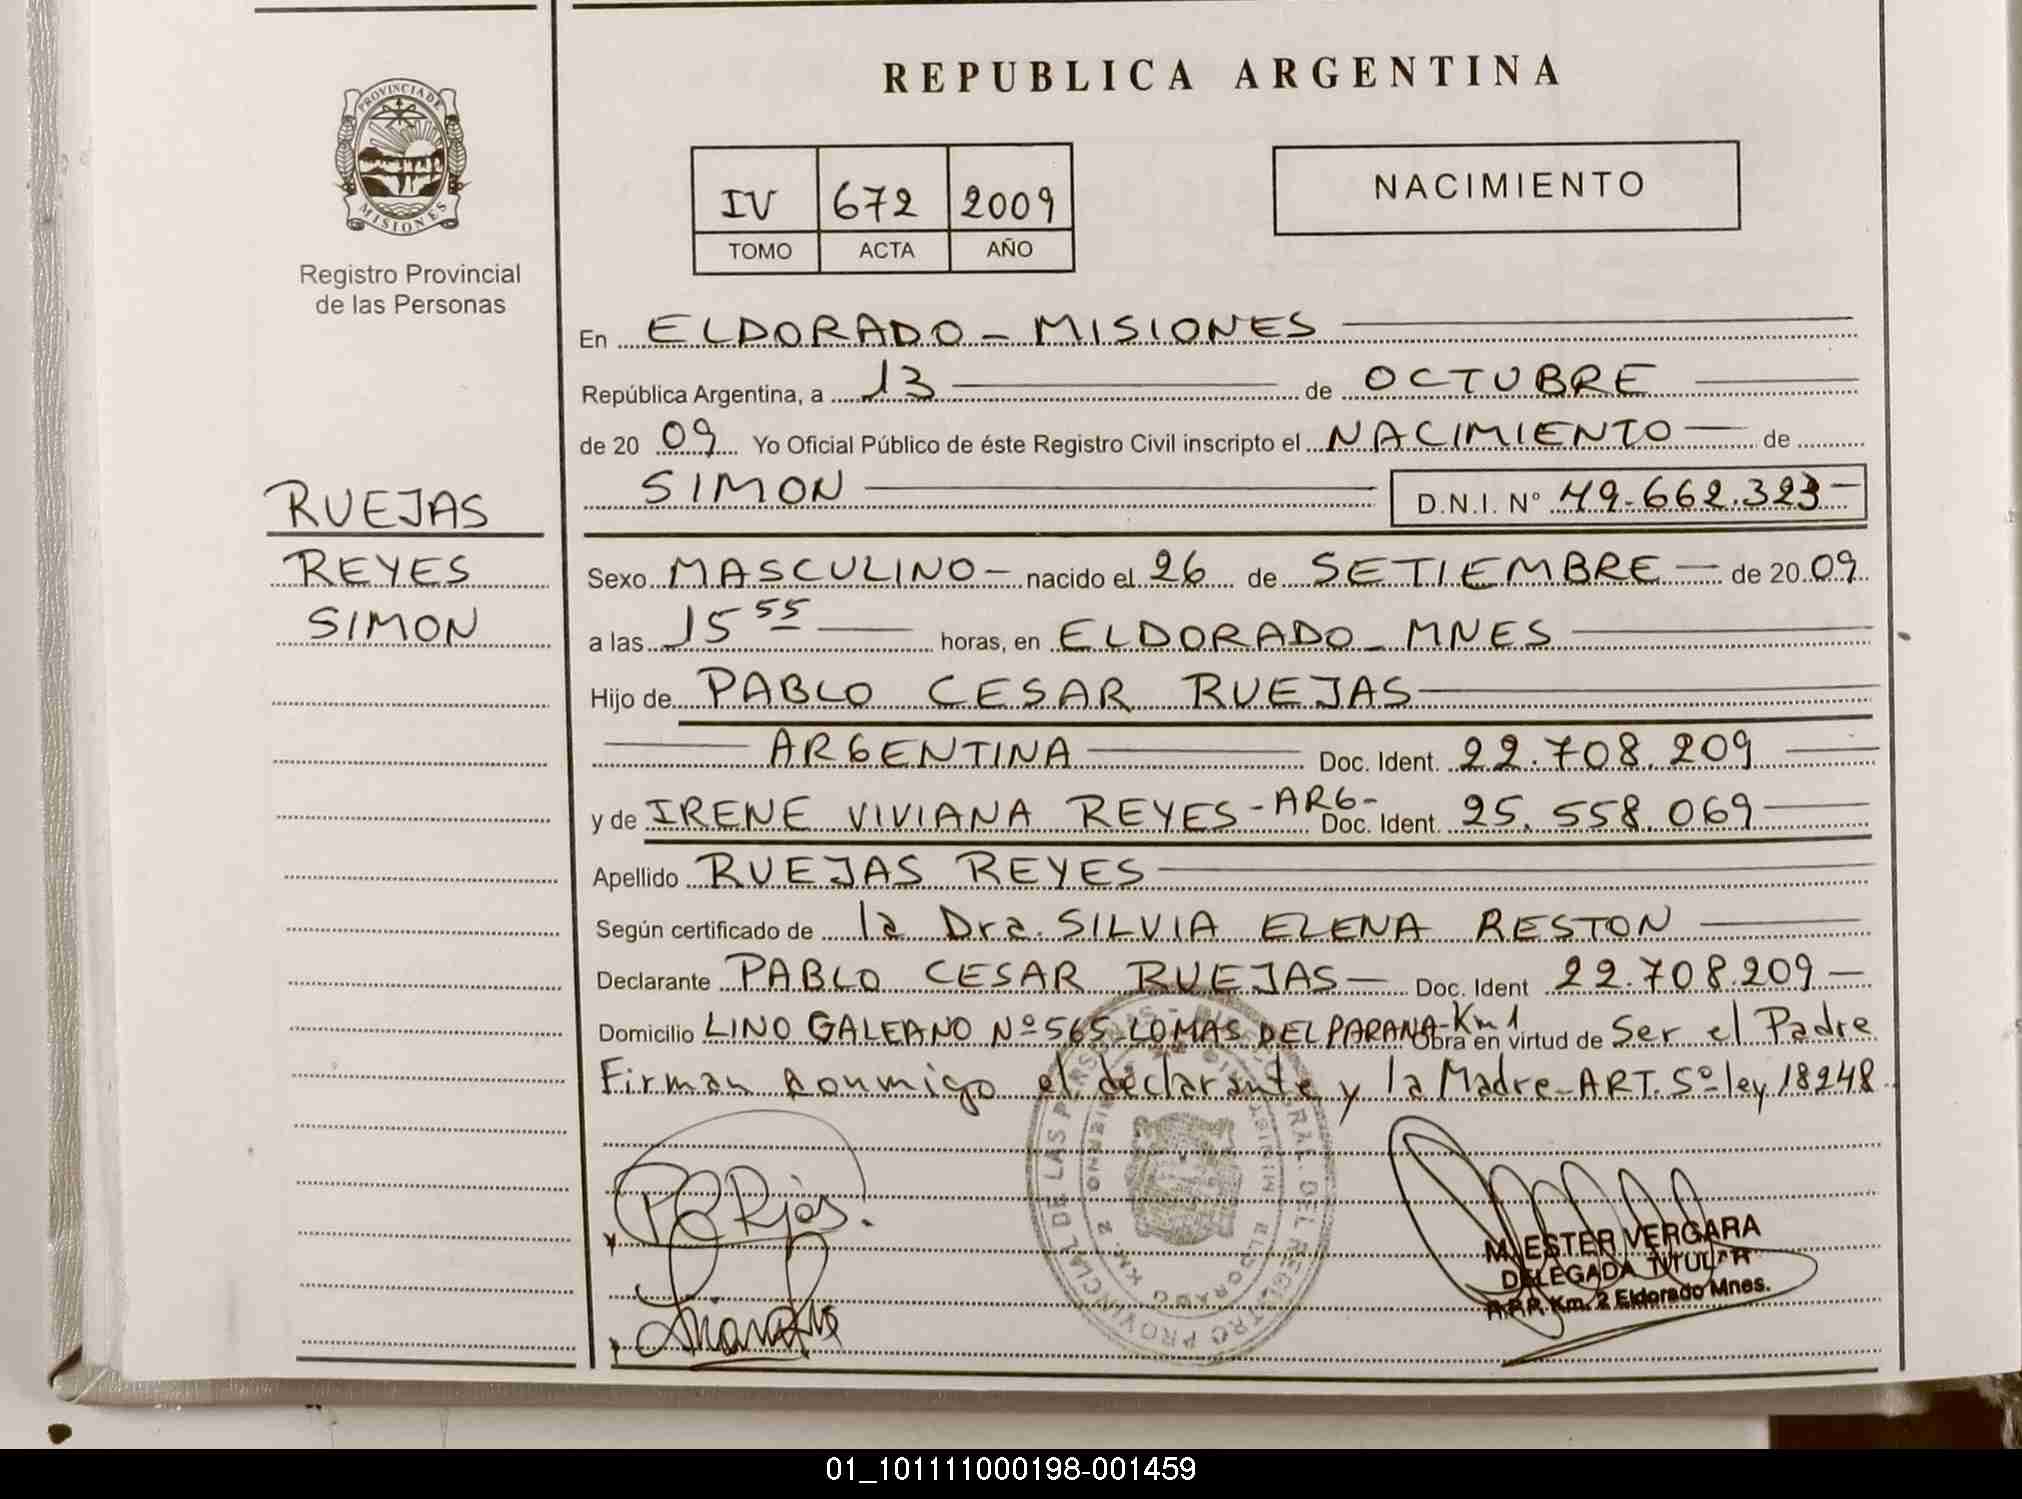 REPUBLICA ARGENTINA
PROVINCIA DE
MISIONES
Registro Provincial
de las Personas
IV 672 2009
TOMO ACTA AÑO
NACIMIENTO
En ELDORADO - MISIONES
República Argentina, a 13 de OCTUBRE
de 20 09 Yo Oficial Público de éste Registro Civil inscripto el NACIMIENTO de
SIMON D.N.I. Nº 49.662.323
RUEJAS
REYES
SIMON
Sexo MASCULINO - nacido el 26 de SETIEMBRE de 20 09
a las 15 55 horas, en ELDORADO - MNES
Hijo de PABLO CESAR RUEJAS
ARGENTINA Doc. Ident. 22.708.209
y de IRENE VIVIANA REYES - ARG - Doc. Ident. 25.558.069
Apellido RUEJAS REYES
Según certificado de la Dra. SILVIA ELENA RESTON
Declarante PABLO CESAR RUEJAS - Doc. Ident 22.708.209
Domicilio LINO GALEANO Nº 565 LOMAS DEL PARANA - Km 1 Obra en virtud de Ser el Padre
Firman conmigo el declarante y la Madre - ART. 5º ley 18248
M. ESTER VERGARA
DELEGADA TITULAR
R.P.P. Km. 2 Eldorado Mnes.
01_101111000198-001459